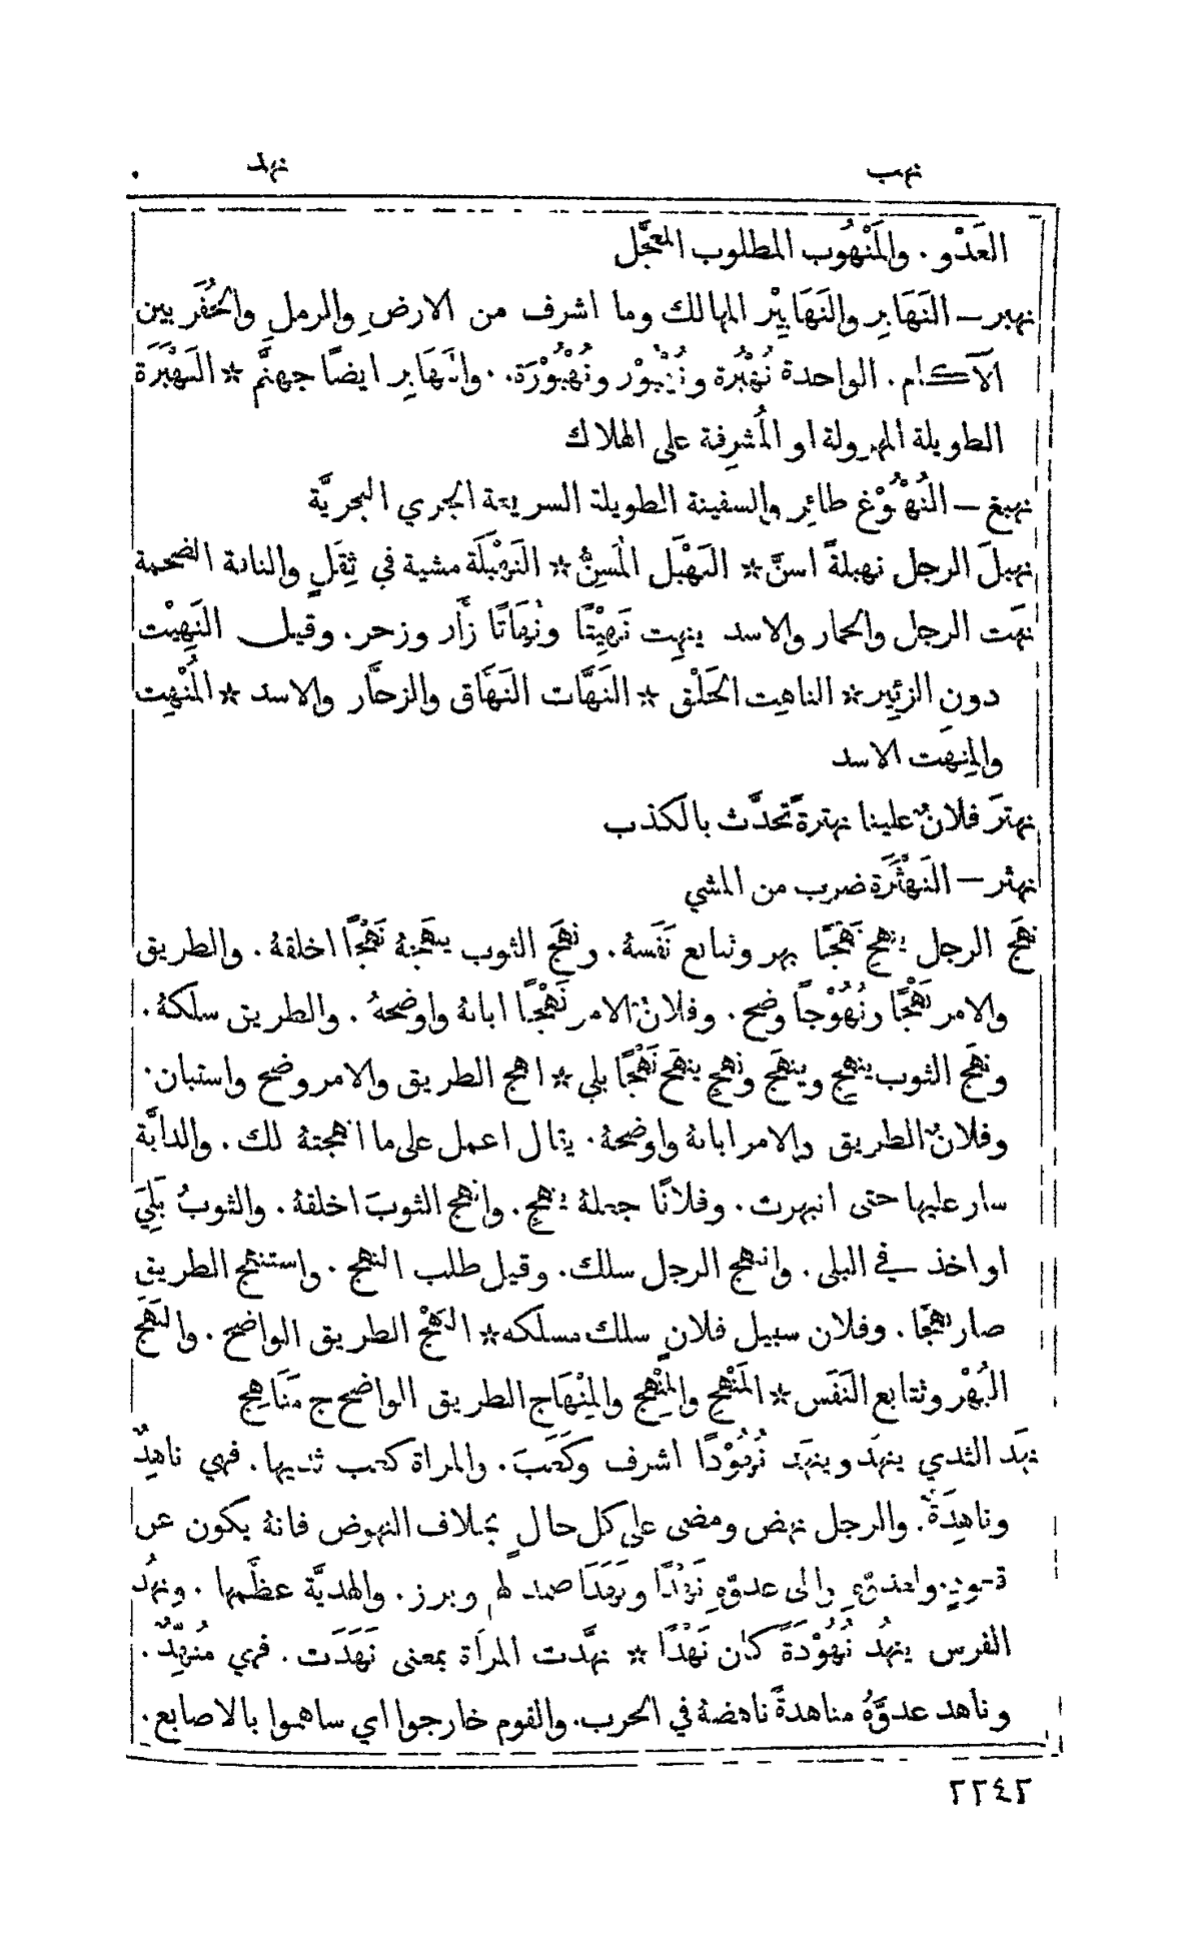 نهب نهد
العَدْو. والمَنْهُوب المطلوب المعجَّل
نهبر — النَهَابِر والنَهَابِيْر المهالك وما اشرف من الارضِ والرملِ والحُفَر بين
الآكام. الواحدة نُهْبُرة ونُهْبُوْر ونُهْبُوْرَة. والنَهَابِر ايضًا جهنَّم * النَهْبَرَة
الطويلة المهزولة او المُشرِفة على الهلاك
نهبغ — النُهْبُوْغ طائِر والسفينة الطويلة السريعة الجري البحريَّة
نهبلَ الرجل نهبلةً اسنَّ * النَهْبَل المُسِنُّ * النَهْبَلَة مشية في ثِقَلٍ والناقة الضخمة
نهَت الرجل والحمار والاسد ينهِت نَهِيْتًا ونُهَاتًا زأَر وزحر. وقيل النَهِيْت
دون الزئِير * الناهِت الحَلْق * النَهَّات النَهَّاق والزحَّار والاسد * المُنْهِت
والمِنهَت الاسد
نهترَ فلانٌ علينا نهترةً تحدَّث بالكذب
نهثر — النَهْثَرَة ضرب من المشي
نَهَج الرجل ينهِج نَهَجًا بهر وتتابع نَفَسهُ. ونَهَج الثوب ينهَجهُ نَهْجًا اخلقهُ. والطريق
والامر نَهْجًا ونُهُوْجًا وضح. وفلانٌ الامر نَهْجًا ابانهُ واوضحهُ. والطريق سلكهُ.
ونهَج الثوب ينهِج وينهَج ونهِج ينهَج نَهْجًا بلي * انهج الطريق والامر وضح واستبان.
وفلانٌ الطريق والامر ابانهُ واوضحهُ. يقال اعمل على ما انهجتهُ لك. والدابَّة
سار عليها حتى انبهرت. وفلانًا جعلهُ ينهج. وانهج الثوبَ اخلقهُ. والثوبُ بَلِيَ
او اخذ في البلى. وانتهج الرجل سلك. وقيل طلب النهج. واستنهج الطريق
صار نهجًا. وفلان سبيل فلانٍ سلك مسلكه * النَهْج الطريق الواضح. والنَهَج
البُهْر وتتابع النَفَس * المَنْهَج والمِنْهَج والمِنْهَاج الطريق الواضح ج مَنَاهِج
نهَد الثدي ينهَد وينهُد نُهُوْدًا اشرف وكَعَبَ. والمراة كعب ثديها. فهي ناهِدٌ
وناهِدَةٌ. والرجل نهض ومضى على كل حالٍ بخلاف النهوض فانهُ يكون عن
قعودٍ والى عدوّهِ نَهْدًا ونَهَدًا صمد لهم وبرز. والهديَّة عظَّمها. ونهُد
الفرس ينهُد نُهُوْدَةً كان نَهْدًا * نهَّدت المرأَة بمعنى نَهَدَت. فهي مُنَهِّدٌ.
وناهد عدوَّهُ مناهدةً ناهضهُ في الحرب. والقوم خارجوا اي ساهموا بالاصابع.
٢٢٤٢